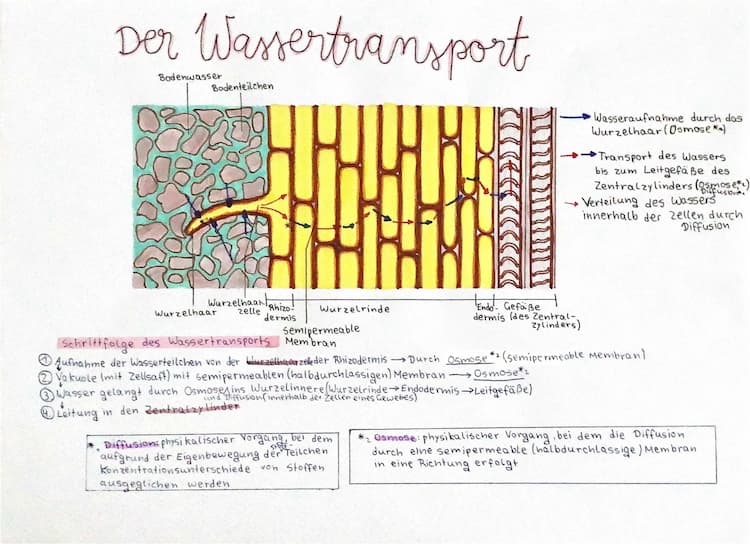 Der Wassertransport
Bodenwasser
Bodenteilchen
→ Wasseraufnahme durch das
Wurzelhaar (Osmose*2)
→→ Transport des Wassers
bis zum Leitgefäße des
Zentralzylinders (Osmose*2,
Diffusion*1)
→ Verteilung des Wassers
innerhalb der Zellen durch
Diffusion
Wurzelhaar
Wurzelhaar-
zelle
Rhizo-
dermis
Semipermeable
Membran
Wurzelrinde
Endo-
dermis
Gefäße
(des Zentral-
zylinders)
Schrittfolge des Wassertransports
① Aufnahme der Wasserteilchen von der Wurzelhaarzelle der Rhizodermis → Durch Osmose*2 (semipermeable Membran)
② Vakuole (mit Zellsaft) mit semipermeablen (halbdurchlässigen) Membran → Osmose*2
③ Wasser gelangt durch Osmose ins Wurzelinnere (Wurzelrinde → Endodermis → Leitgefäße)
und Diffusion (innerhalb der Zellen eines Gewebes)
④ Leitung in den Zentralzylinder
*1 Diffusion: physikalischer Vorgang, bei dem
aufgrund der Eigenbewegung der Teilchen
Konzentrationsunterschiede von Stoffen
ausgeglichen werden
*2 Osmose: physikalischer Vorgang, bei dem die Diffusion
durch eine semipermeable (halbdurchlässige) Membran
in eine Richtung erfolgt